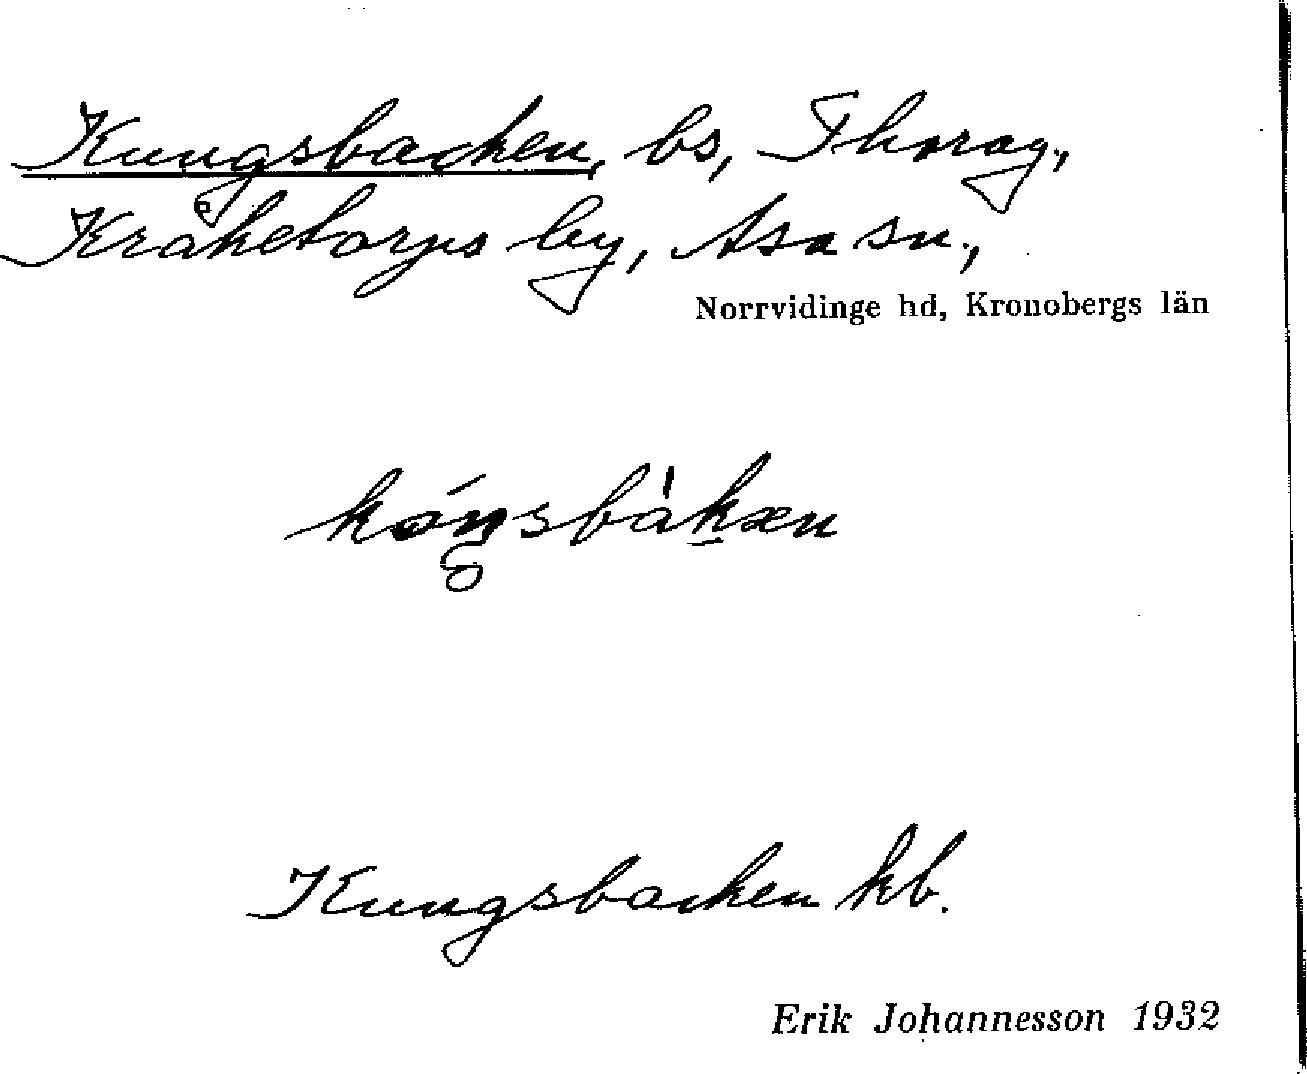 Kungsbacken, bs, Thorag,
Kråketorps by, Asa sn.,
Norrvidinge hd, Kronobergs län
Kungsbacken kb.
Erik Johannesson 1932